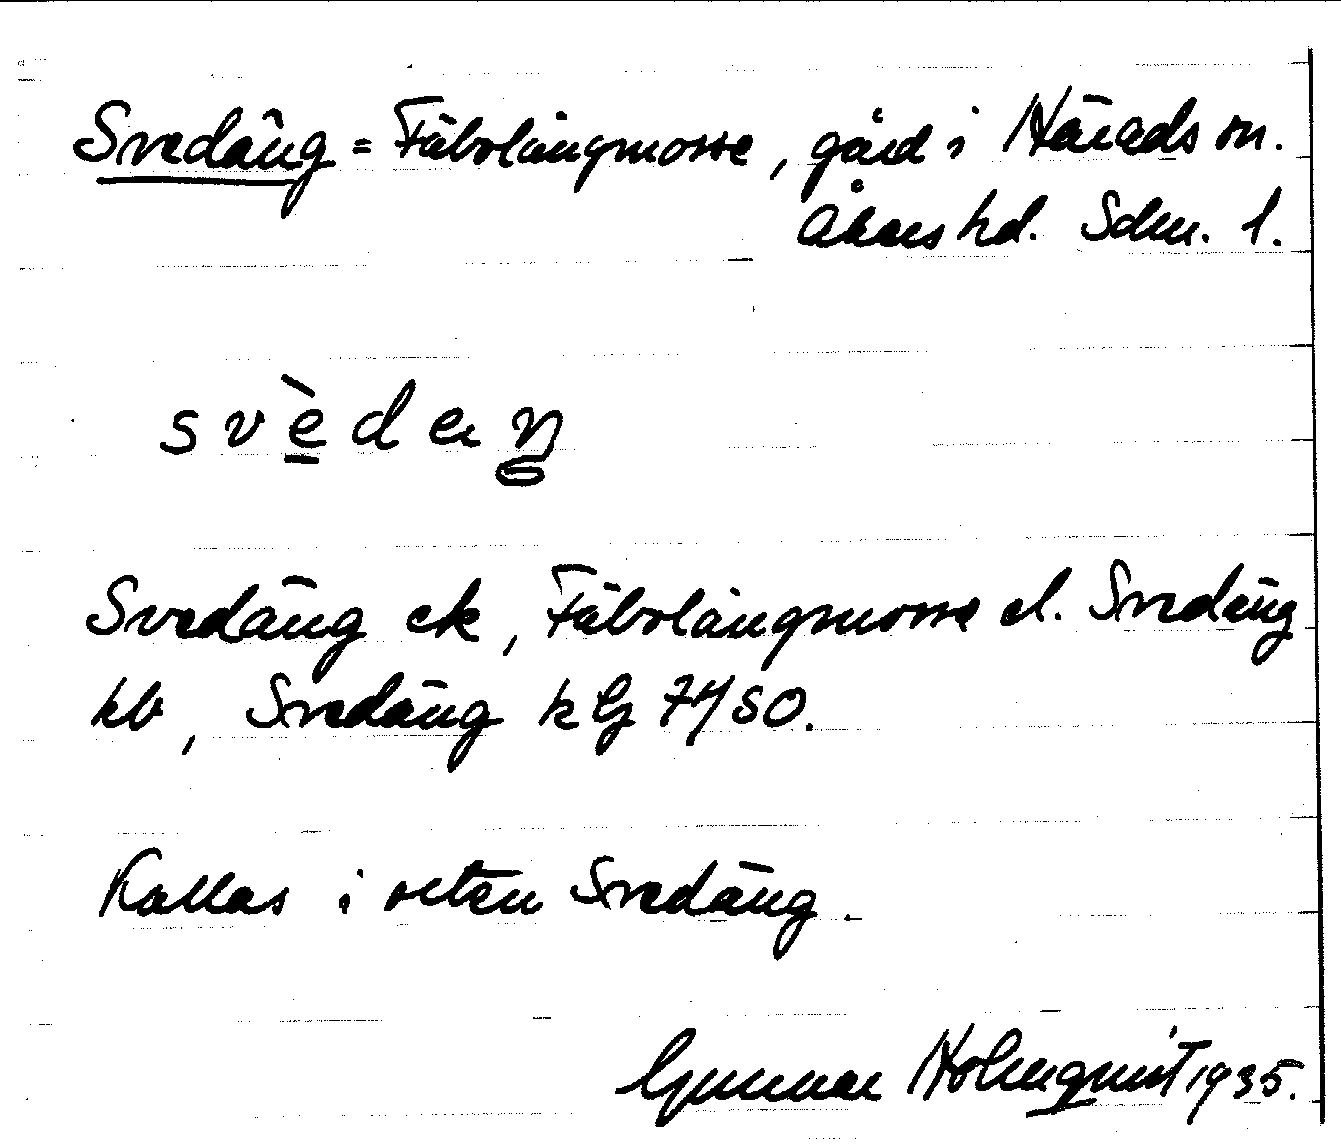 Svedäng = Fäbolångmosse, gård i Härads sn.
Åkers hd. Sdm. l.
svèdeŋ
Svedäng ek, Fäbolångmosse el. Svedäng
kb, Svedäng k Gj 74/50.
Kallas i orten Svedäng.
Gunnar Holmquist 1935.